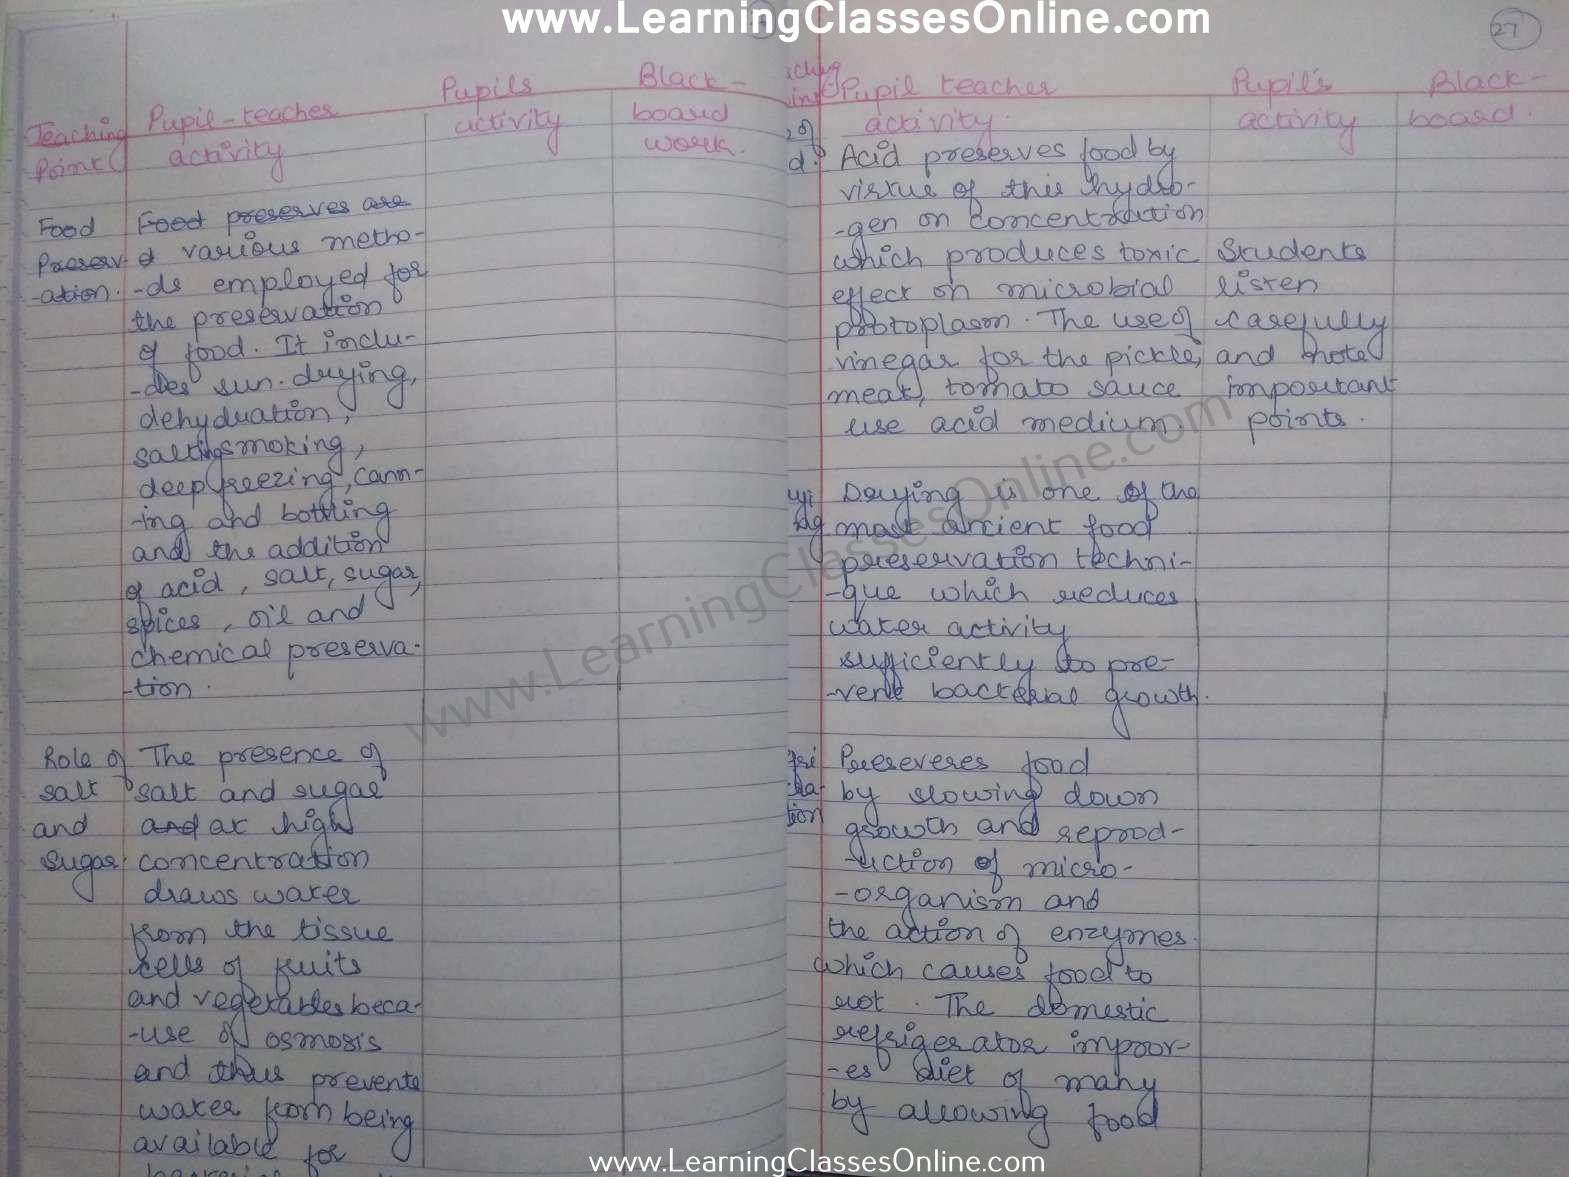 www.LearningClassesOnline.com
Pupils
Black-
Teaching
Pupil-teacher
activity
board
Point
activity
work.
Food
Food preserves are
Preserv-
various metho-
-ation.
-ds employed for
the preservation
of food. It inclu-
-des sun-drying,
dehyduation,
salting smoking,
deep freezing, cann-
-ing and bottling
and the addition
of acid, salt, sugar,
spices, oil and
chemical preserva-
-tion.
Role of
The presence of
salt
salt and sugar
and
and at high
sugar
concentration
draws water
from the tissue
cells of fruits
and vegetables beca-
-use of osmosis
and thus prevents
water from being
available for
27
Pupil teacher
Pupil's
Black-
activity.
activity
board.
Acid preserves food by
virtue of this hydro-
-gen on concentration
which produces toxic
Students
effect on microbial
listen
protoplasm. The use of
carefully
vinegar for the pickle,
and note
meat, tomato sauce
important
use acid medium
points.
Drying is one of the
most ancient food
preservation techni-
-que which reduces
water activity
sufficiently to pre-
-vent bacterial growth.
Preserveres food
by slowing down
tion
growth and reprod-
-uction of micro-
-organism and
the action of enzymes.
which causes food to
rot. The domestic
refrigerator improv-
-es diet of many
by allowing food
www.LearningClassesOnline.com
www.LearningClassesOnline.com